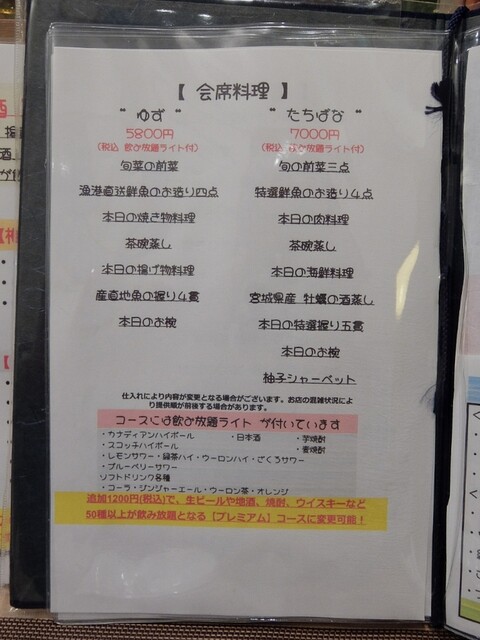 【 会席料理 】
" ゆず "
5800円
(税込 飲み放題ライト付)
旬菜の前菜
漁港直送鮮魚のお造り四点
本日の焼き物料理
茶碗蒸し
本日の揚げ物料理
産直地魚の握り4貫
本日のお椀
" たちばな "
7000円
(税込 飲み放題ライト付)
旬の前菜三点
特選鮮魚のお造り4点
本日の肉料理
茶碗蒸し
本日の海鮮料理
宮城県産 牡蠣の酒蒸し
本日の特選握り五貫
本日のお椀
柚子シャーベット
仕入れにより内容が変更となる場合がございます。お店の混雑状況によ
り提供順が前後する場合があります。
コースには飲み放題ライト が付いています
・カナディアンハイボール ・日本酒 ・芋焼酎
・スコッチハイボール ・麦焼酎
・レモンサワー・緑茶ハイ・ウーロンハイ・ざくろサワー
・ブルーベリーサワー
ソフトドリンク各種
・コーラ・ジンジャーエール・ウーロン茶・オレンジ
追加1200円(税込)で、生ビールや地酒、焼酎、ウイスキーなど
50種以上が飲み放題となる【プレミアム】コースに変更可能！